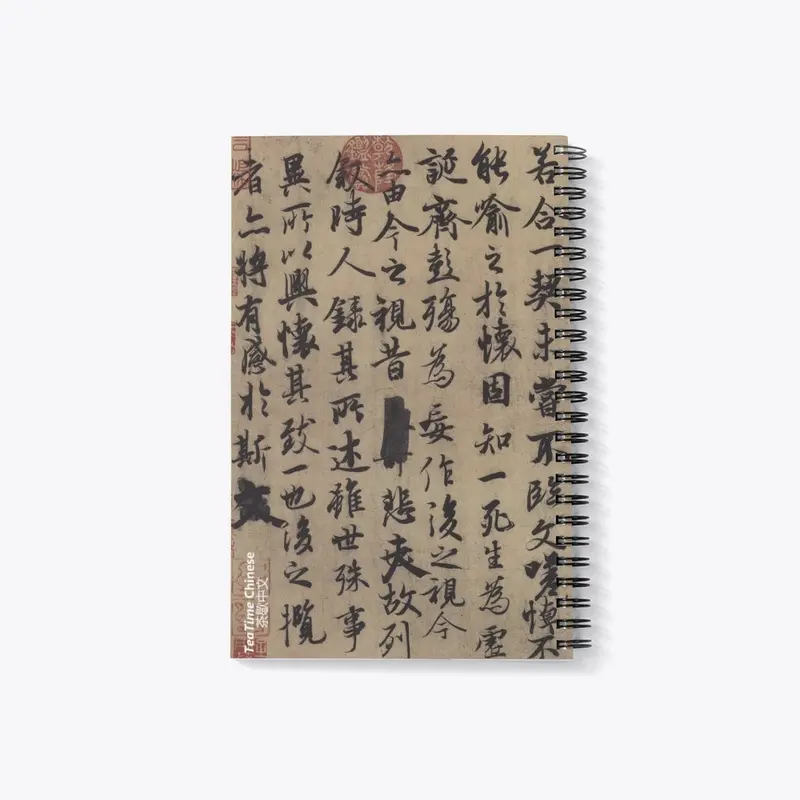 若合一契未嘗不臨文嗟悼不
能喻之於懷固知一死生為虛
誕齊彭殤為妄作後之視今
亦由今之視昔悲夫故列
叙時人錄其所述雖世殊事
異所以興懷其致一也後之攬
者亦將有感於斯文
TeaTime Chinese
茶歇中文